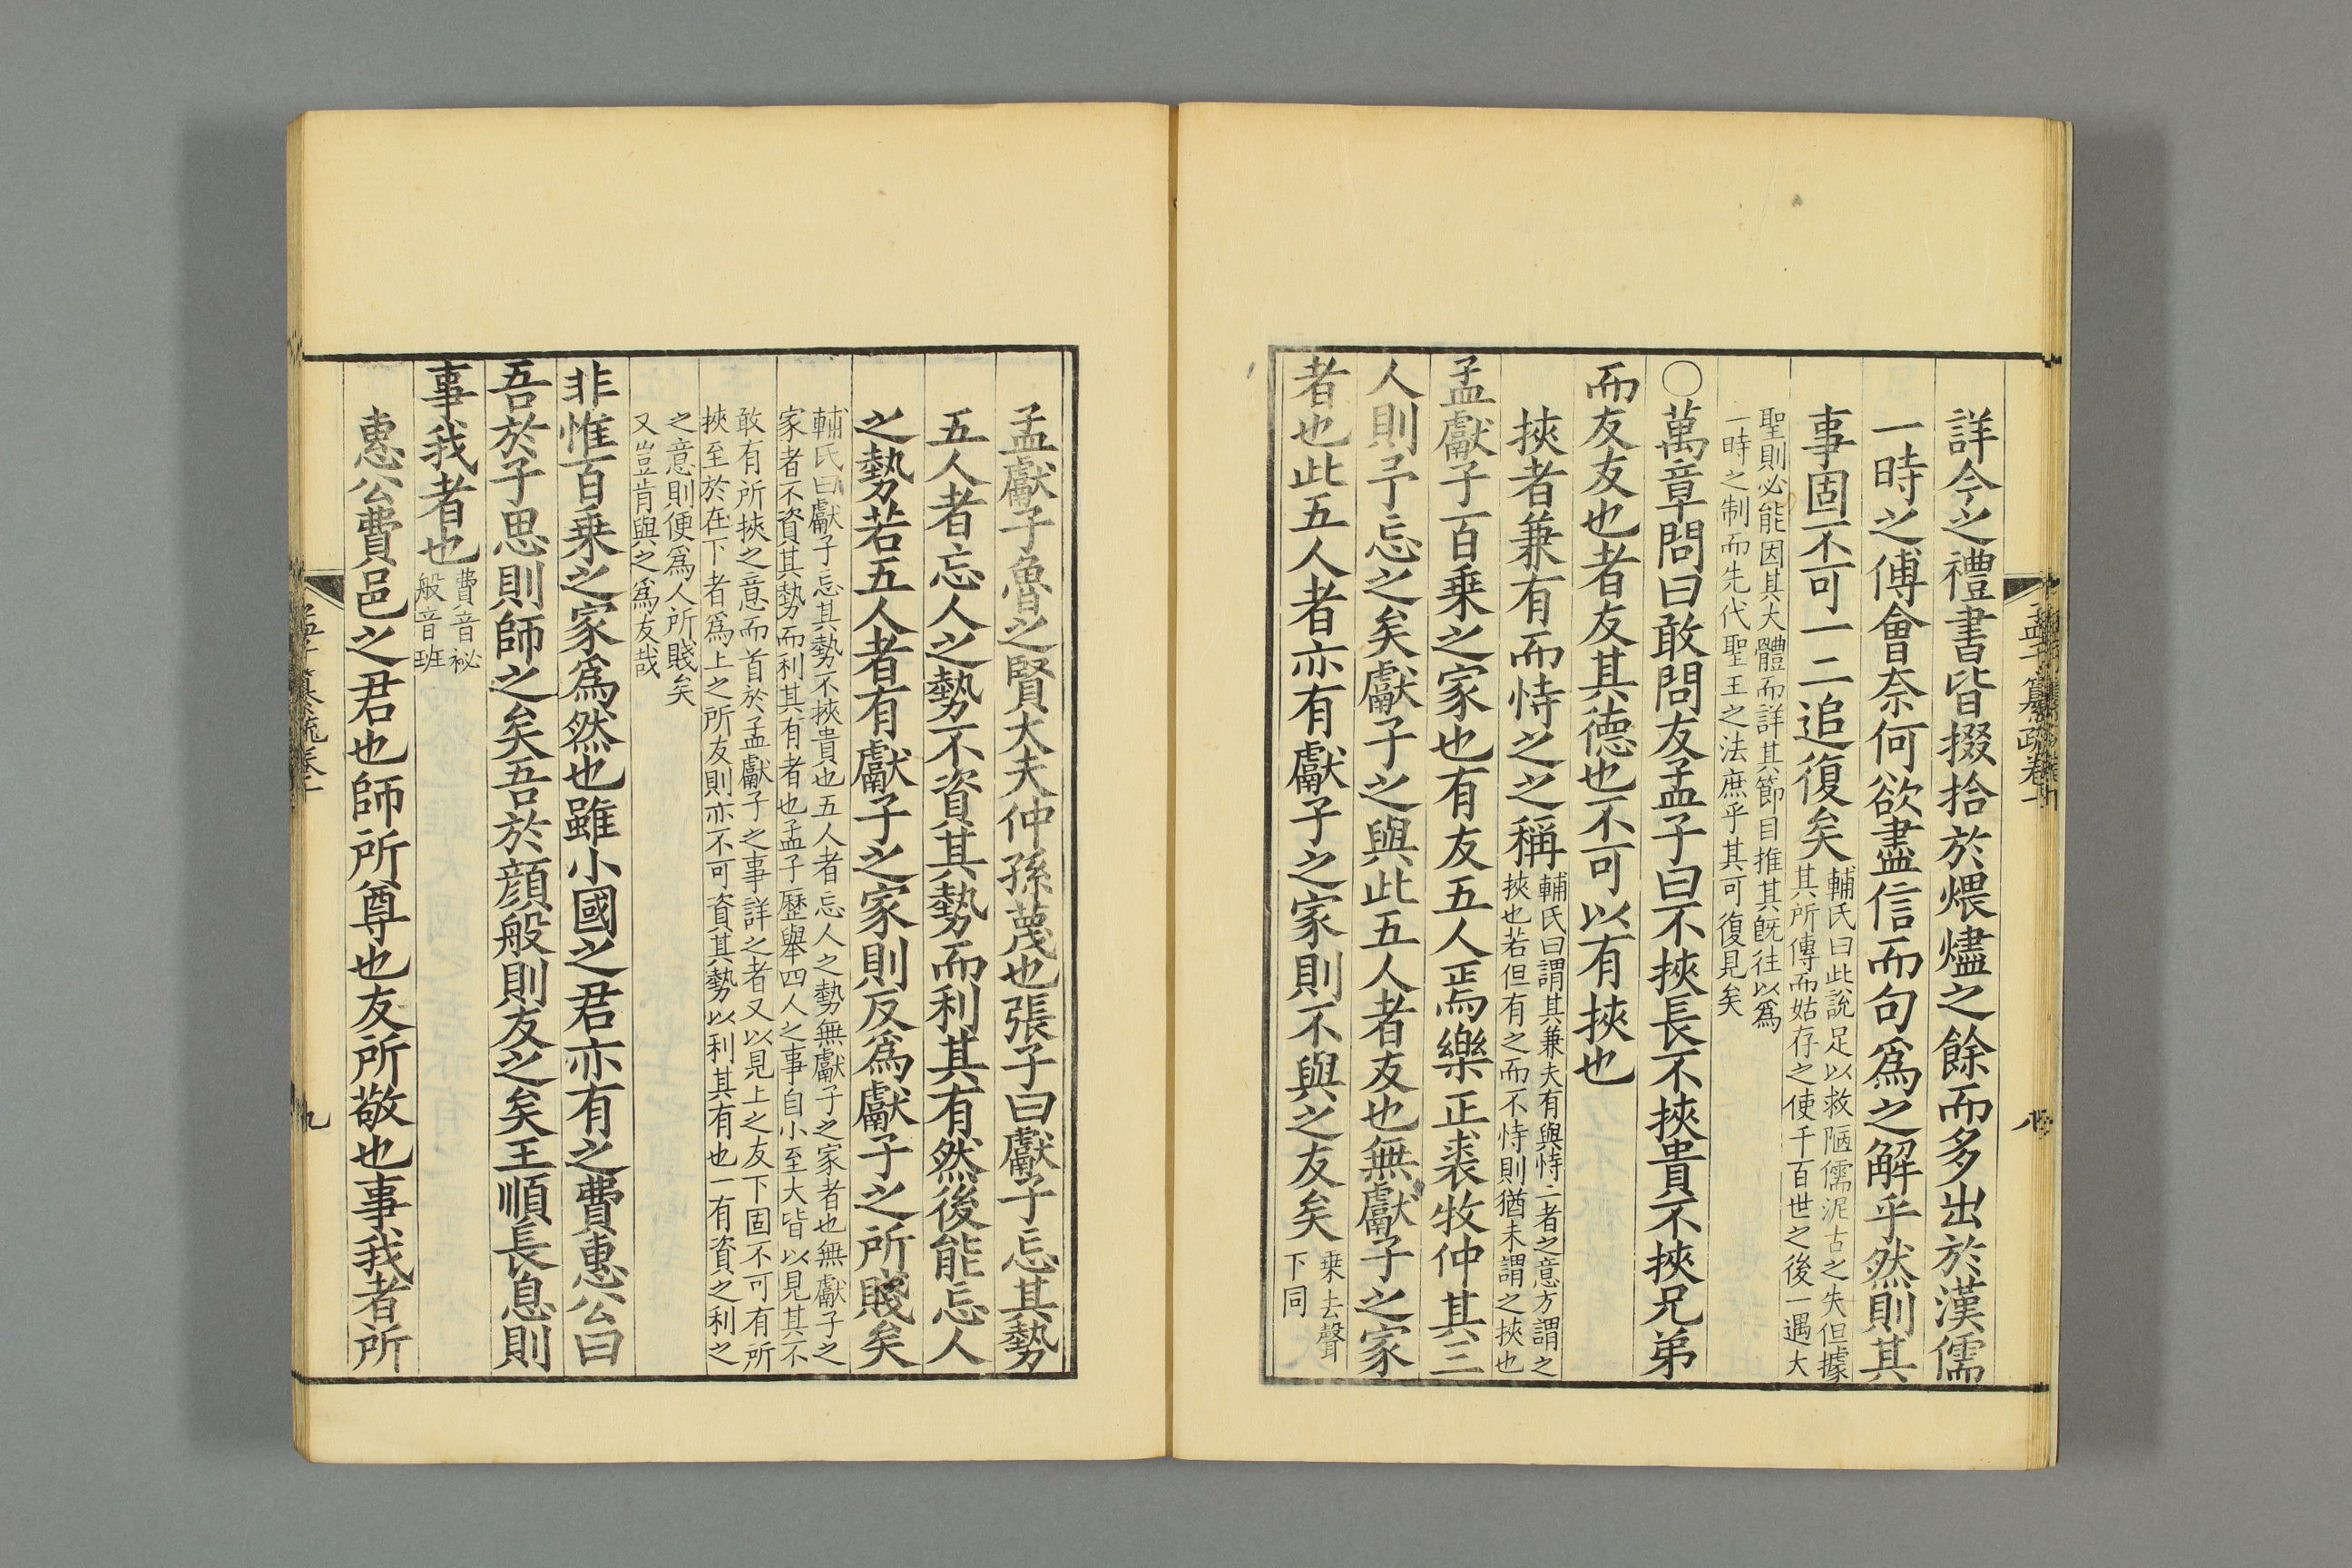 詳今之禮書皆掇拾於煨燼之餘而多出於漢儒
一時之傅會奈何欲盡信而句爲之解乎然則其
事固不可一二追復矣
輔氏曰此說足以救陋儒泥古之失但據
其所傳而姑存之使千百世之後一遇大
聖則必能因其大體而詳其節目推其旣往以爲
一時之制而先代聖王之法庶乎其可復見矣
○萬章問曰敢問友孟子曰不挾長不挾貴不挾兄弟
而友友也者友其德也不可以有挾也
挾者兼有而恃之之稱
輔氏曰謂其兼夫有與恃二者之意方謂之
挾也若但有之而不恃則猶未謂之挾也
孟獻子百乗之家也有友五人焉樂正裘牧仲其三
人則予忘之矣獻子之與此五人者友也無獻子之家
者也此五人者亦有獻子之家則不與之友矣
乗去聲
下同
孟子纂疏卷十
八
孟獻子魯之賢大夫仲孫蔑也張子曰獻子忘其勢
五人者忘人之勢不資其勢而利其有然後能忘人
之勢若五人者有獻子之家則反爲獻子之所賤矣
輔氏曰獻子忘其勢不挾貴也五人者忘人之勢無獻子之家者也無獻子之
家者不資其勢而利其有者也孟子歷舉四人之事自小至大皆以見其不
敢有所挾之意而首於孟獻子之事詳之者又以見上之友下固不可有所
挾至於在下者爲上之所友則亦不可資其勢以利其有也一有資之利之
之意則便爲人所賤矣
又豈肯與之爲友哉
非惟百乗之家爲然也雖小國之君亦有之費惠公曰
吾於子思則師之矣吾於顔般則友之矣王順長息則
事我者也
費音祕
般音班
惠公費邑之君也師所尊也友所敬也事我者所
孟子纂疏卷十
九